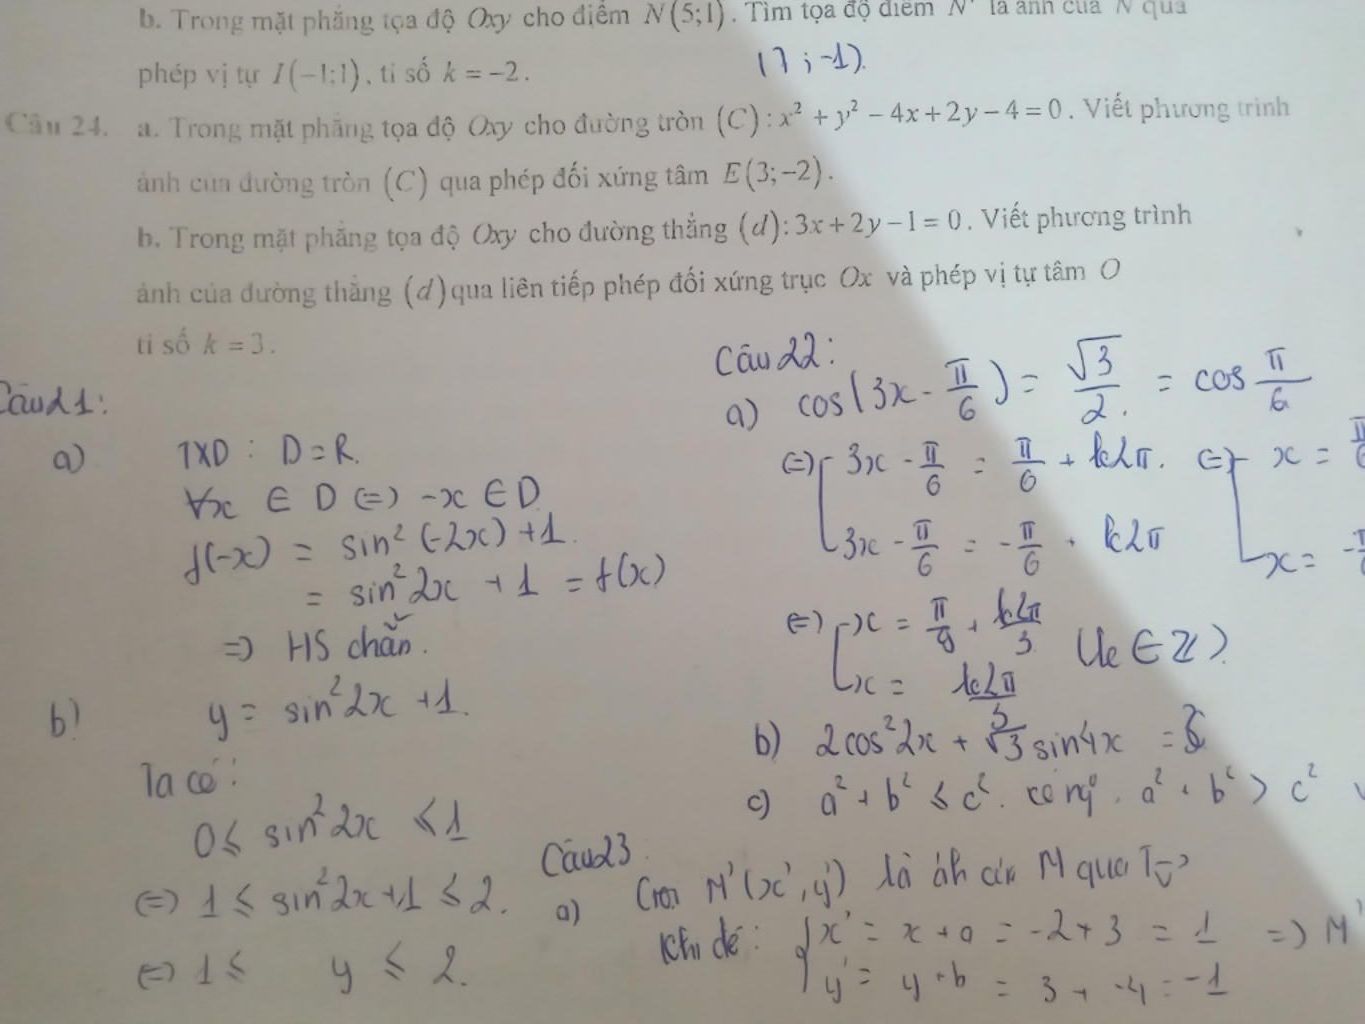 b. Trong mặt phẳng tọa độ Oxy cho điểm N(5;1). Tìm tọa độ điểm N' là ảnh của N qua
phép vị tự I(−1;1), tỉ số k = −2.
(7 ; -1).
Câu 24. a. Trong mặt phẳng tọa độ Oxy cho đường tròn (C): x² + y² − 4x + 2y − 4 = 0. Viết phương trình
ảnh của đường tròn (C) qua phép đối xứng tâm E(3;−2).
b. Trong mặt phẳng tọa độ Oxy cho đường thẳng (d): 3x + 2y − 1 = 0. Viết phương trình
ảnh của đường thẳng (d) qua liên tiếp phép đối xứng trục Ox và phép vị tự tâm O
tỉ số k = 3.
Câu 21:
a) TXD : D = R.
∀x ∈ D (=) -x ∈ D
f(-x) = sin² (-2x) + 1.
= sin² 2x + 1 = f(x)
=> HS chẵn.
b) y = sin² 2x + 1.
Ta có:
0 ≤ sin² 2x ≤ 1
(=) 1 ≤ sin² 2x + 1 ≤ 2.
(=) 1 ≤ y ≤ 2.
Câu 22:
a) cos(3x - π/6) = √3/2 = cos π/6
(=) [ 3x - π/6 = π/6 + k2π. (=) [ x =
3x - π/6 = -π/6 + k2π x = -
(=) [ x = π/9 + k2π/3 (k ∈ Z)
x = k2π/3
b) 2cos² 2x + √3 sin4x =
c) a² + b² ≤ c². a² + b² > c²
Câu 23
a) Gọi M'(x', y') là ảh của M qua Tv
Khi đó: { x' = x + a = -2 + 3 = 1 => M'
y' = y + b = 3 + -4 = -1